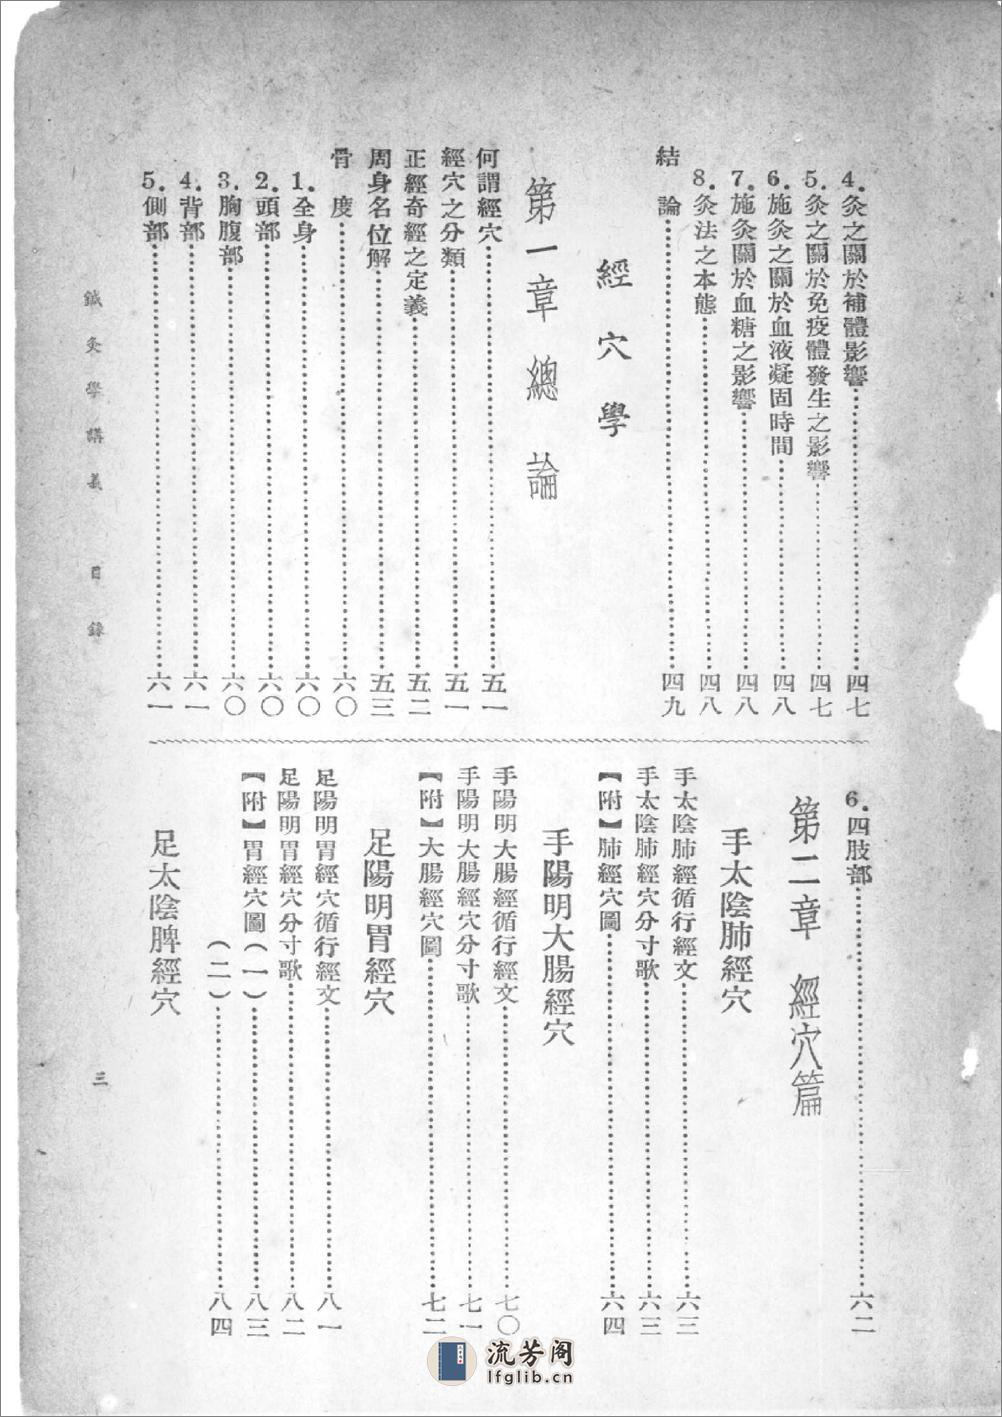 4.灸之關於補體影響………四七
5.灸之關於免疫體發生之影響………四七
6.施灸之關於血液凝固時間………四八
7.施灸關於血糖之影響………四八
8.灸法之本態………四八
結論………四九
經穴學
第一章 總論
何謂經穴………五一
經穴之分類………五一
正經奇經之定義………五二
周身名位解………五三
骨度………六〇
1.全身………六〇
2.頭部………六〇
3.胸腹部………六〇
4.背部………六一
5.側部………六一
6.四肢部………六二
第二章 經穴篇
手太陰肺經穴
手太陰肺經循行經文………六三
手太陰肺經穴分寸歌………六三
【附】肺經穴圖………六四
手陽明大腸經穴
手陽明大腸經循行經文………七〇
手陽明大腸經穴分寸歌………七一
【附】大腸經穴圖………七二
足陽明胃經穴
足陽明胃經穴循行經文………八一
足陽明胃經穴分寸歌………八二
【附】胃經穴圖(一)………八三
(二)………八四
足太陰脾經穴
鍼灸學講義 目錄
三
流芳阁
lfglib.cn